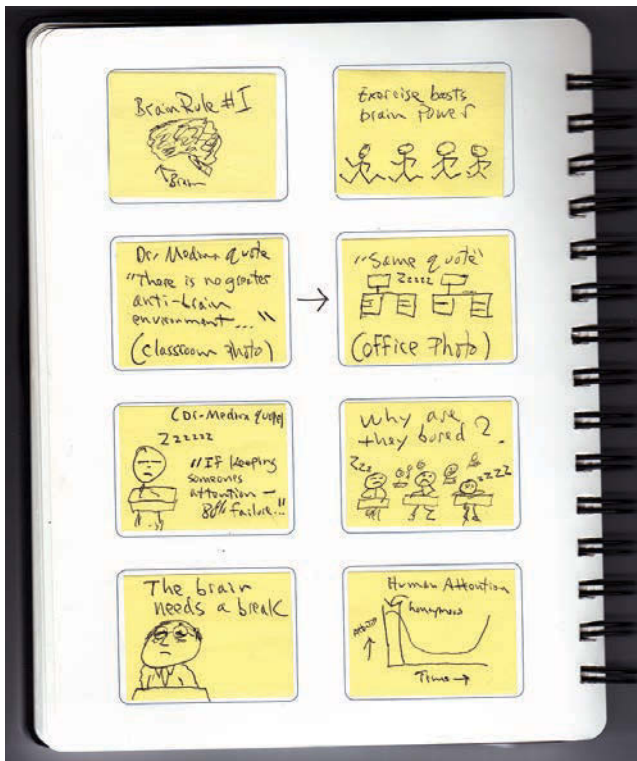 Brain Rule #1
Brain
Exercise boosts
brain power
Dr. Medina quote
"There is no greater
anti-brain
environment..."
(classroom Photo)
"Same quote"
Zzzzz
(office Photo)
(Dr. Medina quote)
Zzzzzz
"If keeping
someones
attention —
80% failure..."
Why are
they bored?
Zzz
zzzz
The brain
needs a break
Human Attention
honeymoon
Time →